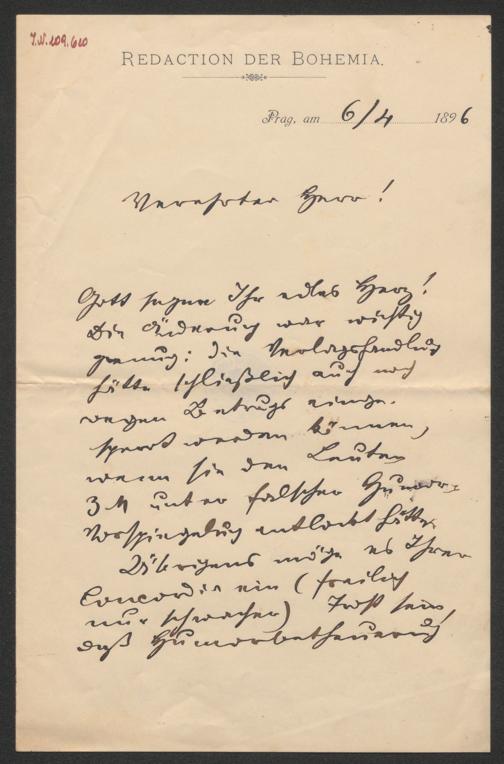 I.N. 109.610
REDACTION DER BOHEMIA.
Prag, am 6/4 1896
Verehrter Herr!
Gott segne Ihr edles Herz!
Die Änderung war wichtig
genug: die Verlagshandlung
hätte schließlich auch noch
wegen Betrugs einge-
sperrt werden können,
wenn sie den Leuten
3 M unter falscher Humor-
Vorspiegelung entlockt hätte.
Übrigens möge es Ihrer
Concordia ein (freilich
nur schwacher) Trost sein,
daß Humorbetheuerung